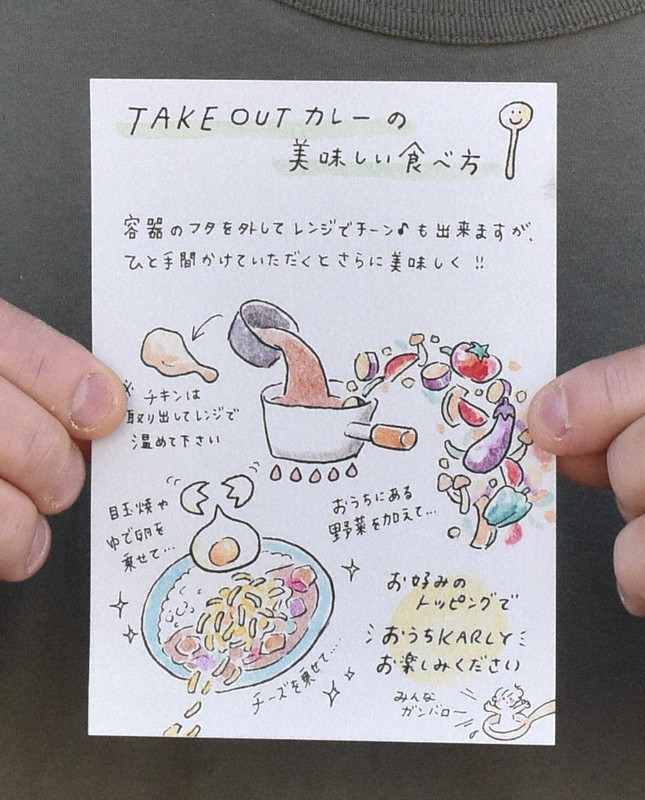 TAKE OUT カレーの
美味しい食べ方
容器のフタを外してレンジでチーン♪も出来ますが、
ひと手間かけていただくとさらに美味しく!!
※チキンは
取り出してレンジで
温めて下さい
目玉焼や
ゆで卵を
乗せて…
おうちにある
野菜を加えて…
お好みの
トッピングで
おうちKARLY
お楽しみください
チーズを乗せて....
みんな
ガンバロー